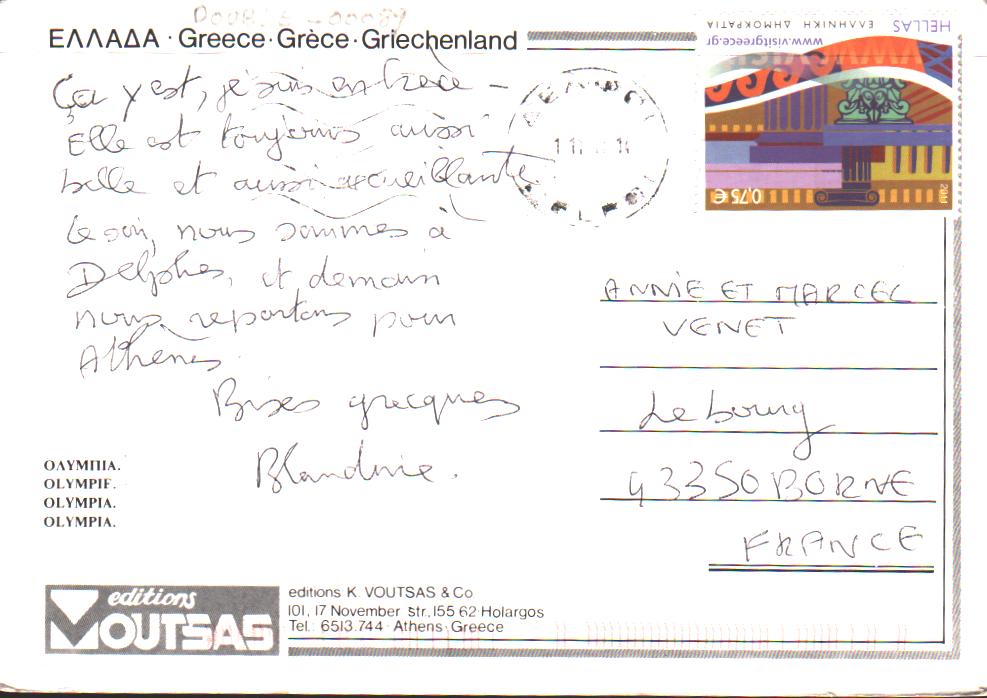 D008
ΕΛΛΑΔΑ · Greece · Grèce · Griechenland
HELLAS
ΕΛΛΗΝΙΚΗ ΔΗΜΟΚΡΑΤΙΑ
www.visitgreece.gr
0,75 €
Ça y est, je suis en Grèce –
Elle est toujours aussi
belle et aussi accueillante.
Le soir, nous sommes à
Delphes, et demain
nous repartons pour
Athènes.
Bises grecques
Blandine.
ANNIE ET MARCEL
VENET
Le bourg
43350 BORNE
FRANCE
ΟΛΥΜΠΙΑ.
OLYMPIE.
OLYMPIA.
OLYMPIA.
editions
VOUTSAS
editions K. VOUTSAS & Co
101, 17 November str. 155 62 Holargos
Tel.: 6513.744 · Athens · Greece